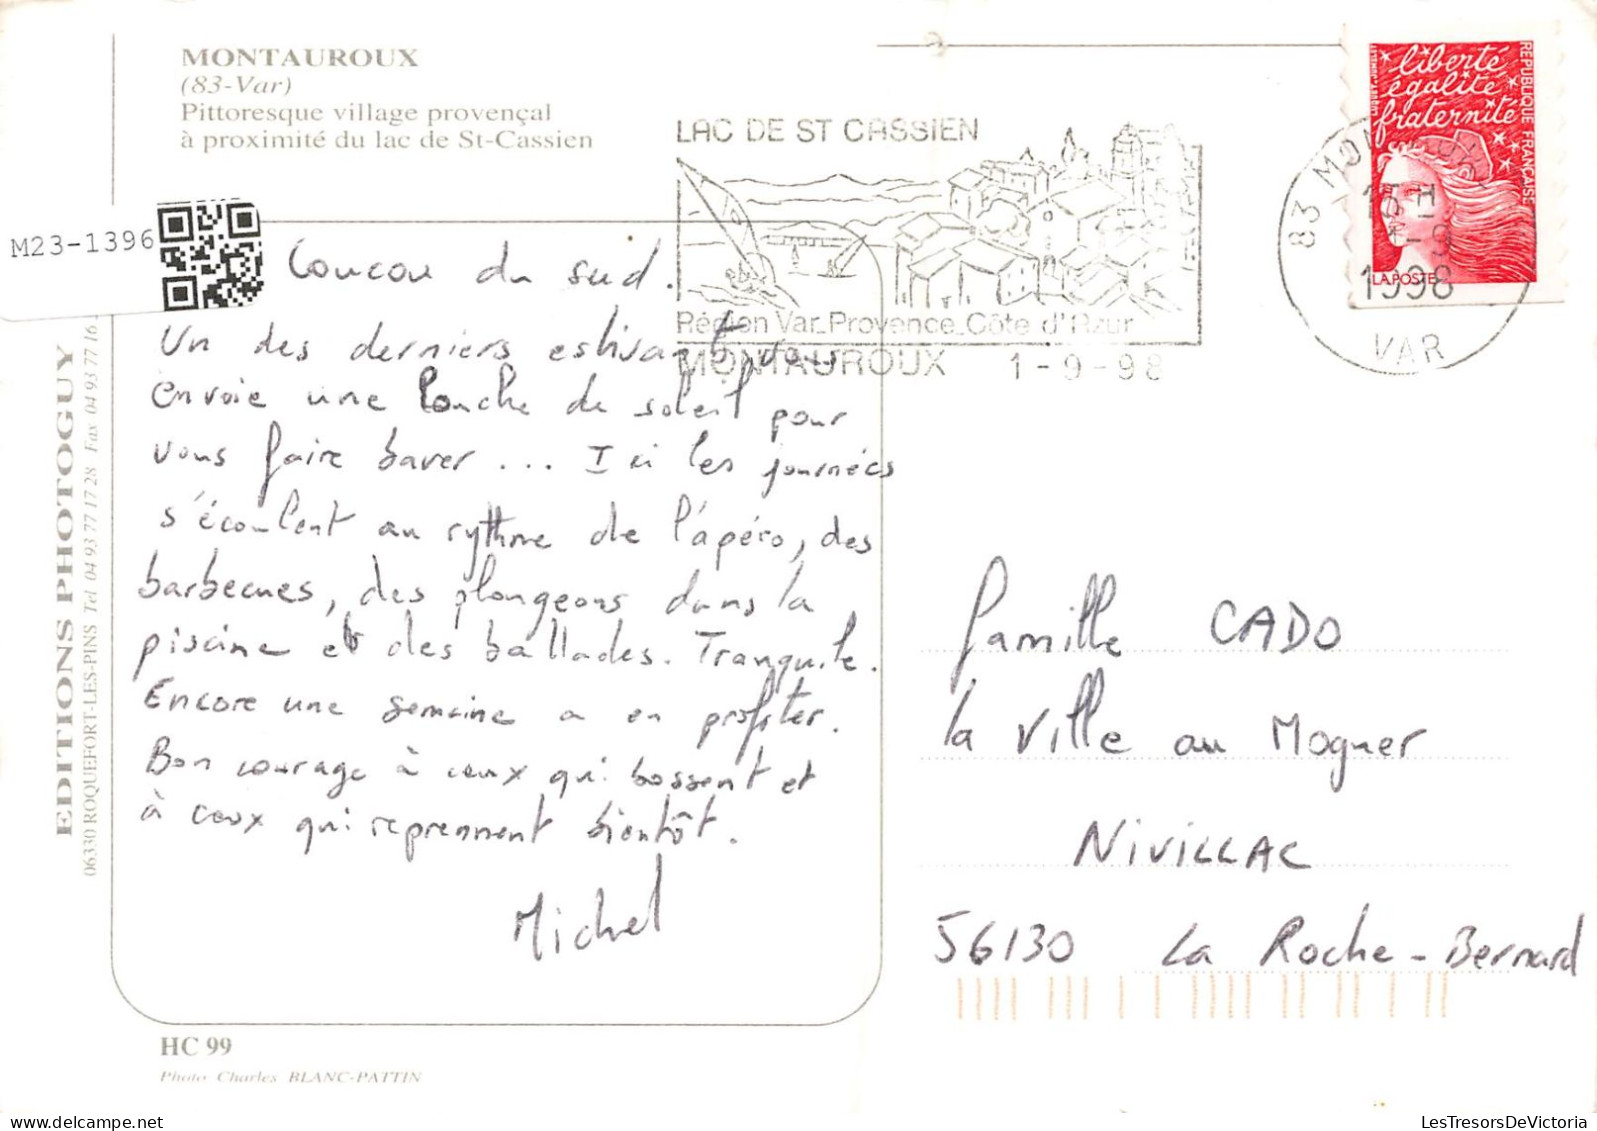 MONTAUROUX
(83-Var)
Pittoresque village provençal
à proximité du lac de St-Cassien
M23-1396
LAC DE ST CASSIEN
Région Var_Provence_Côte d'Azur
MONTAUROUX 1-9-98
liberté
égalité
fraternité
RÉPUBLIQUE FRANÇAISE
LA POSTE
83 MONTAUROUX
15 H
1-9
1998
VAR
Coucou du sud.
Un des derniers estivants vous
envoie une louche de soleil pour
vous faire baver ... Ici les journées
s'écoulent au rythme de l'apéro, des
barbecues, des plongeons dans la
piscine et des ballades. Tranquile.
Encore une semaine a en profiter.
Bon courage à ceux qui bossent et
à ceux qui reprennent bientôt.
Michel
famille CADO
la Ville au Moguer
NIVILLAC
56130 La Roche-Bernard
EDITIONS PHOTOGUY
06330 ROQUEFORT-LES-PINS Tel 04 93 77 17 28 Fax 04 93 77 16
HC 99
Photo Charles BLANC-PATTIN
LesTresorsDeVictoria